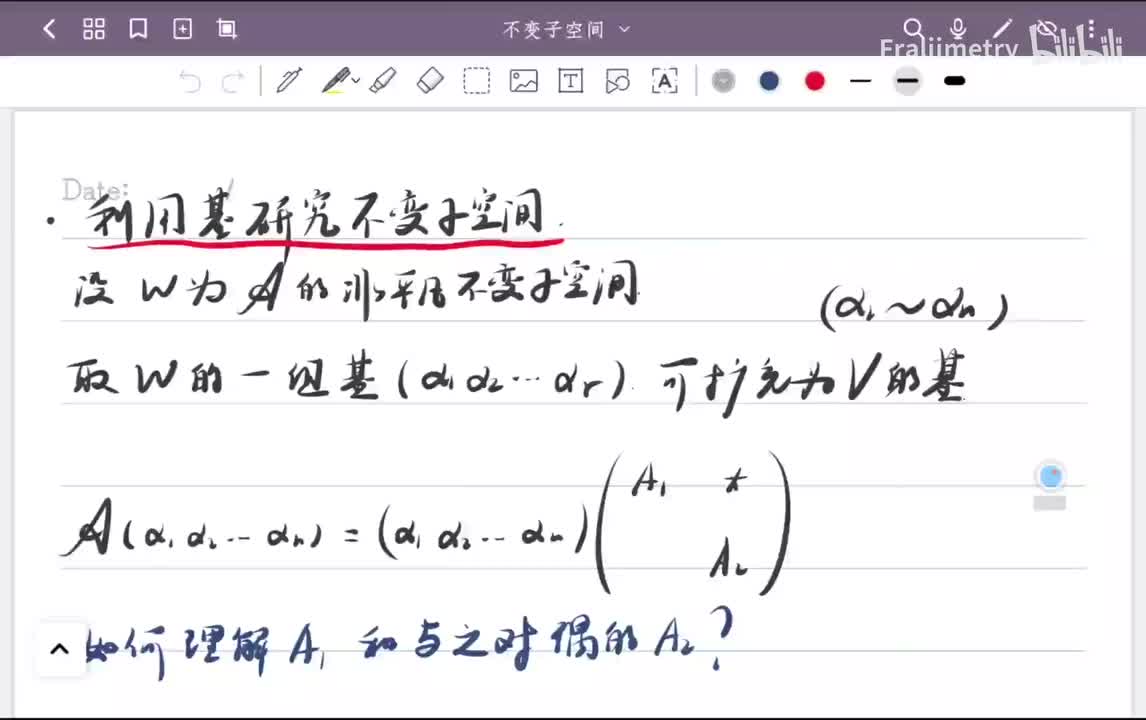 不变子空间
Fraljimetry bilibili
Date:
· 利用基研究不变子空间.
设 W 为 𝒜 的非平凡不变子空间
(α₁~αₙ)
取 W 的一组基 (α₁ α₂ ⋯ αᵣ) 可扩充为 V 的基
𝒜(α₁ α₂ ⋯ αₙ) = (α₁ α₂ ⋯ αₙ) ( A₁ *
A₂ )
如何理解 A₁ 和与之对偶的 A₂?